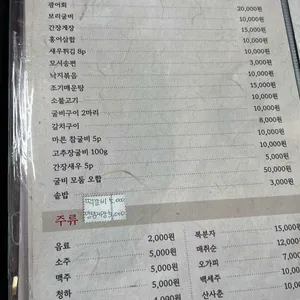 광어회 20,000원
보리굴비 10,000원
간장게장 15,000원
홍어삼합 10,000원
새우튀김 8p 10,000원
모시송편 3,000원
낙지볶음 10,000원
조기매운탕 15,000원
소불고기 10,000원
굴비구이 2마리 10,000원
갈치구이 8,000원
마른 참굴비 5p 10,000원
고추장굴비 100g 10,000원
간장새우 5p 5,000원
굴비 모둠 오합 50,000원
솥밥 3,000원
주류
음료 2,000원
소주 5,000원
맥주 5,000원
청하 5,000원
복분자 15,000
매취순 12,000
오가피 7,000
백세주 10,000
산사춘 10,00